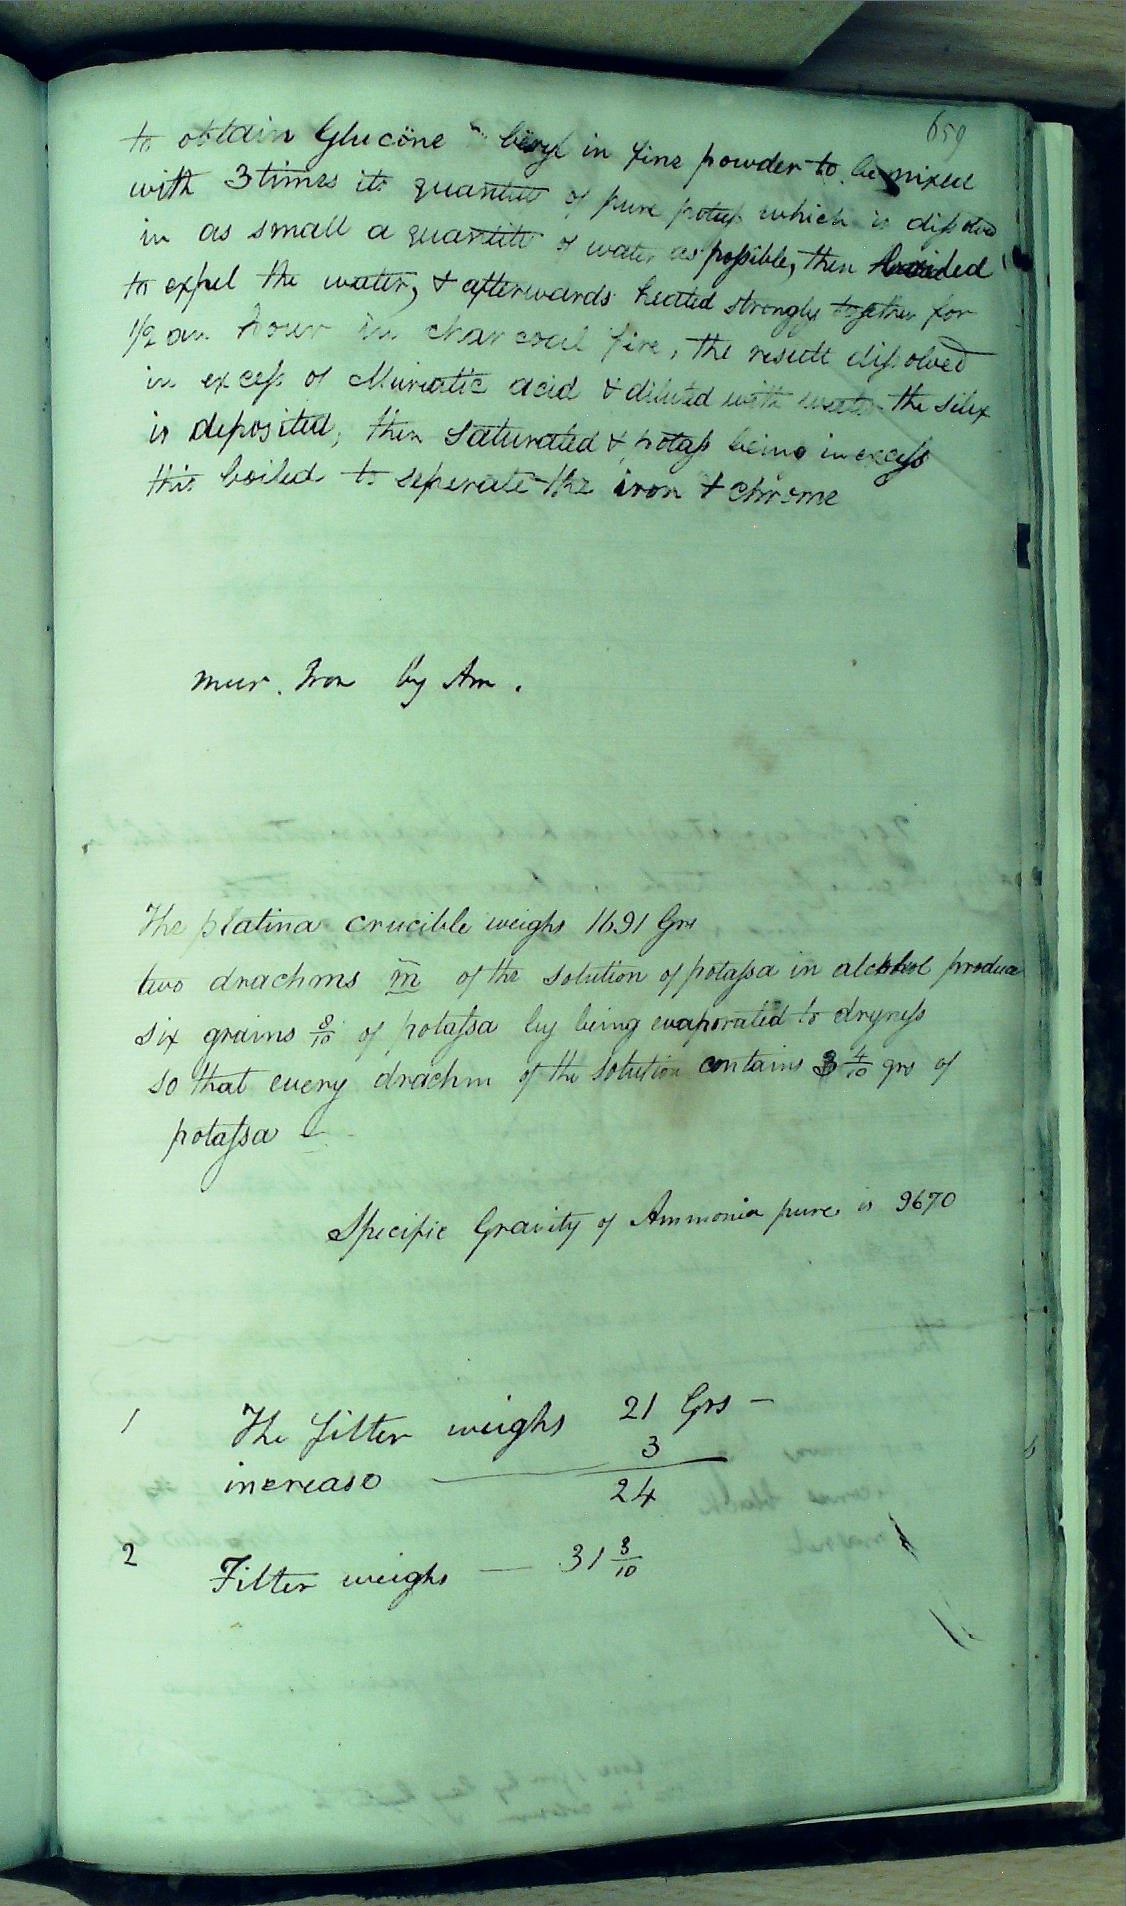 659
to obtain Glucine beryl in fine powder to be mixed
with 3 times its quantity of pure potaſs which is diſsolved
in as small a quantity of water as poſsible, then
to expel the water, & afterwards heated strongly together for
1/2 an hour in charcoal fire, the result diſsolved
in exceſs of Muriatic acid & diluted with water the silex
is deposited, then saturated & potaſs being in exceſs
this boiled to seperate the iron & chrome
mur. Iron by Am.
The platina crucible weighs 1691 Grs
two drachms m of the solution of potaſsa in alcohol produce
six grains 8/10 of potaſsa by being evaporated to dryneſs
so that every drachm of the solution contains 3 4/10 grs of
potaſsa —
Specific Gravity of Ammonia pure is 9670
1 The filter weighs 21 Grs —
3
increase — 24
2 Filter weighs — 31 3/10